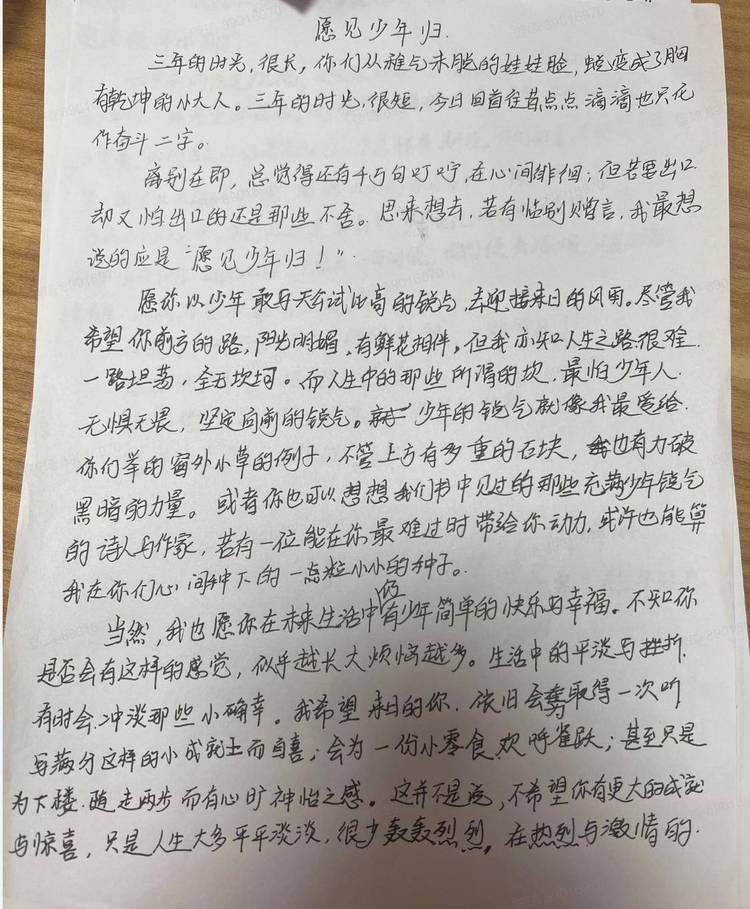 愿见少年归.
三年的时光,很长,你们从稚气未脱的娃娃脸,蜕变成了胸
有乾坤的小大人。三年的时光,很短,今日回首往昔点点滴滴也只化
作奋斗二字。
离别在即,总觉得还有千万句叮咛,在心间徘徊;但若要出口
却又怕出口的还是那些不舍。思来想去,若有临别赠言,我最想
说的应是“愿见少年归!”.
愿你以少年敢与天公试比高的锐气,去迎接来日的风雨。尽管我
希望你前方的路,阳光明媚,有鲜花相伴。但我亦知人生之路很难
一路坦荡,全无坎坷。而人生中的那些所谓的坎,最怕少年人
无惧无畏,坚定向前的锐气。少年的锐气就像我最爱给
你们举的窗外小草的例子,不管上方有多重的石块,也有力破
黑暗的力量。或者你也可以想想我们书中见过的那些充满少年锐气
的诗人与作家,若有一位能在你最难过时带给你动力,或许也能算
我在你们心间种下的一点粒小小的种子。
当然,我也愿你在未来生活中仍有少年简单的快乐与幸福。不知你
是否会有这样的感觉,似乎越长大烦恼越多。生活中的平淡与挫折,
有时会冲淡那些小确幸。我希望来日的你,依旧会为取得一次听
写满分这样的小成就而自喜;会为一份小零食欢呼雀跃;甚至只是
为下楼随走两步而有心旷神怡之感。这并不是说,不希望你有更大的成就
与惊喜,只是人生大多平平淡淡,很少轰轰烈烈。在热烈与激情的